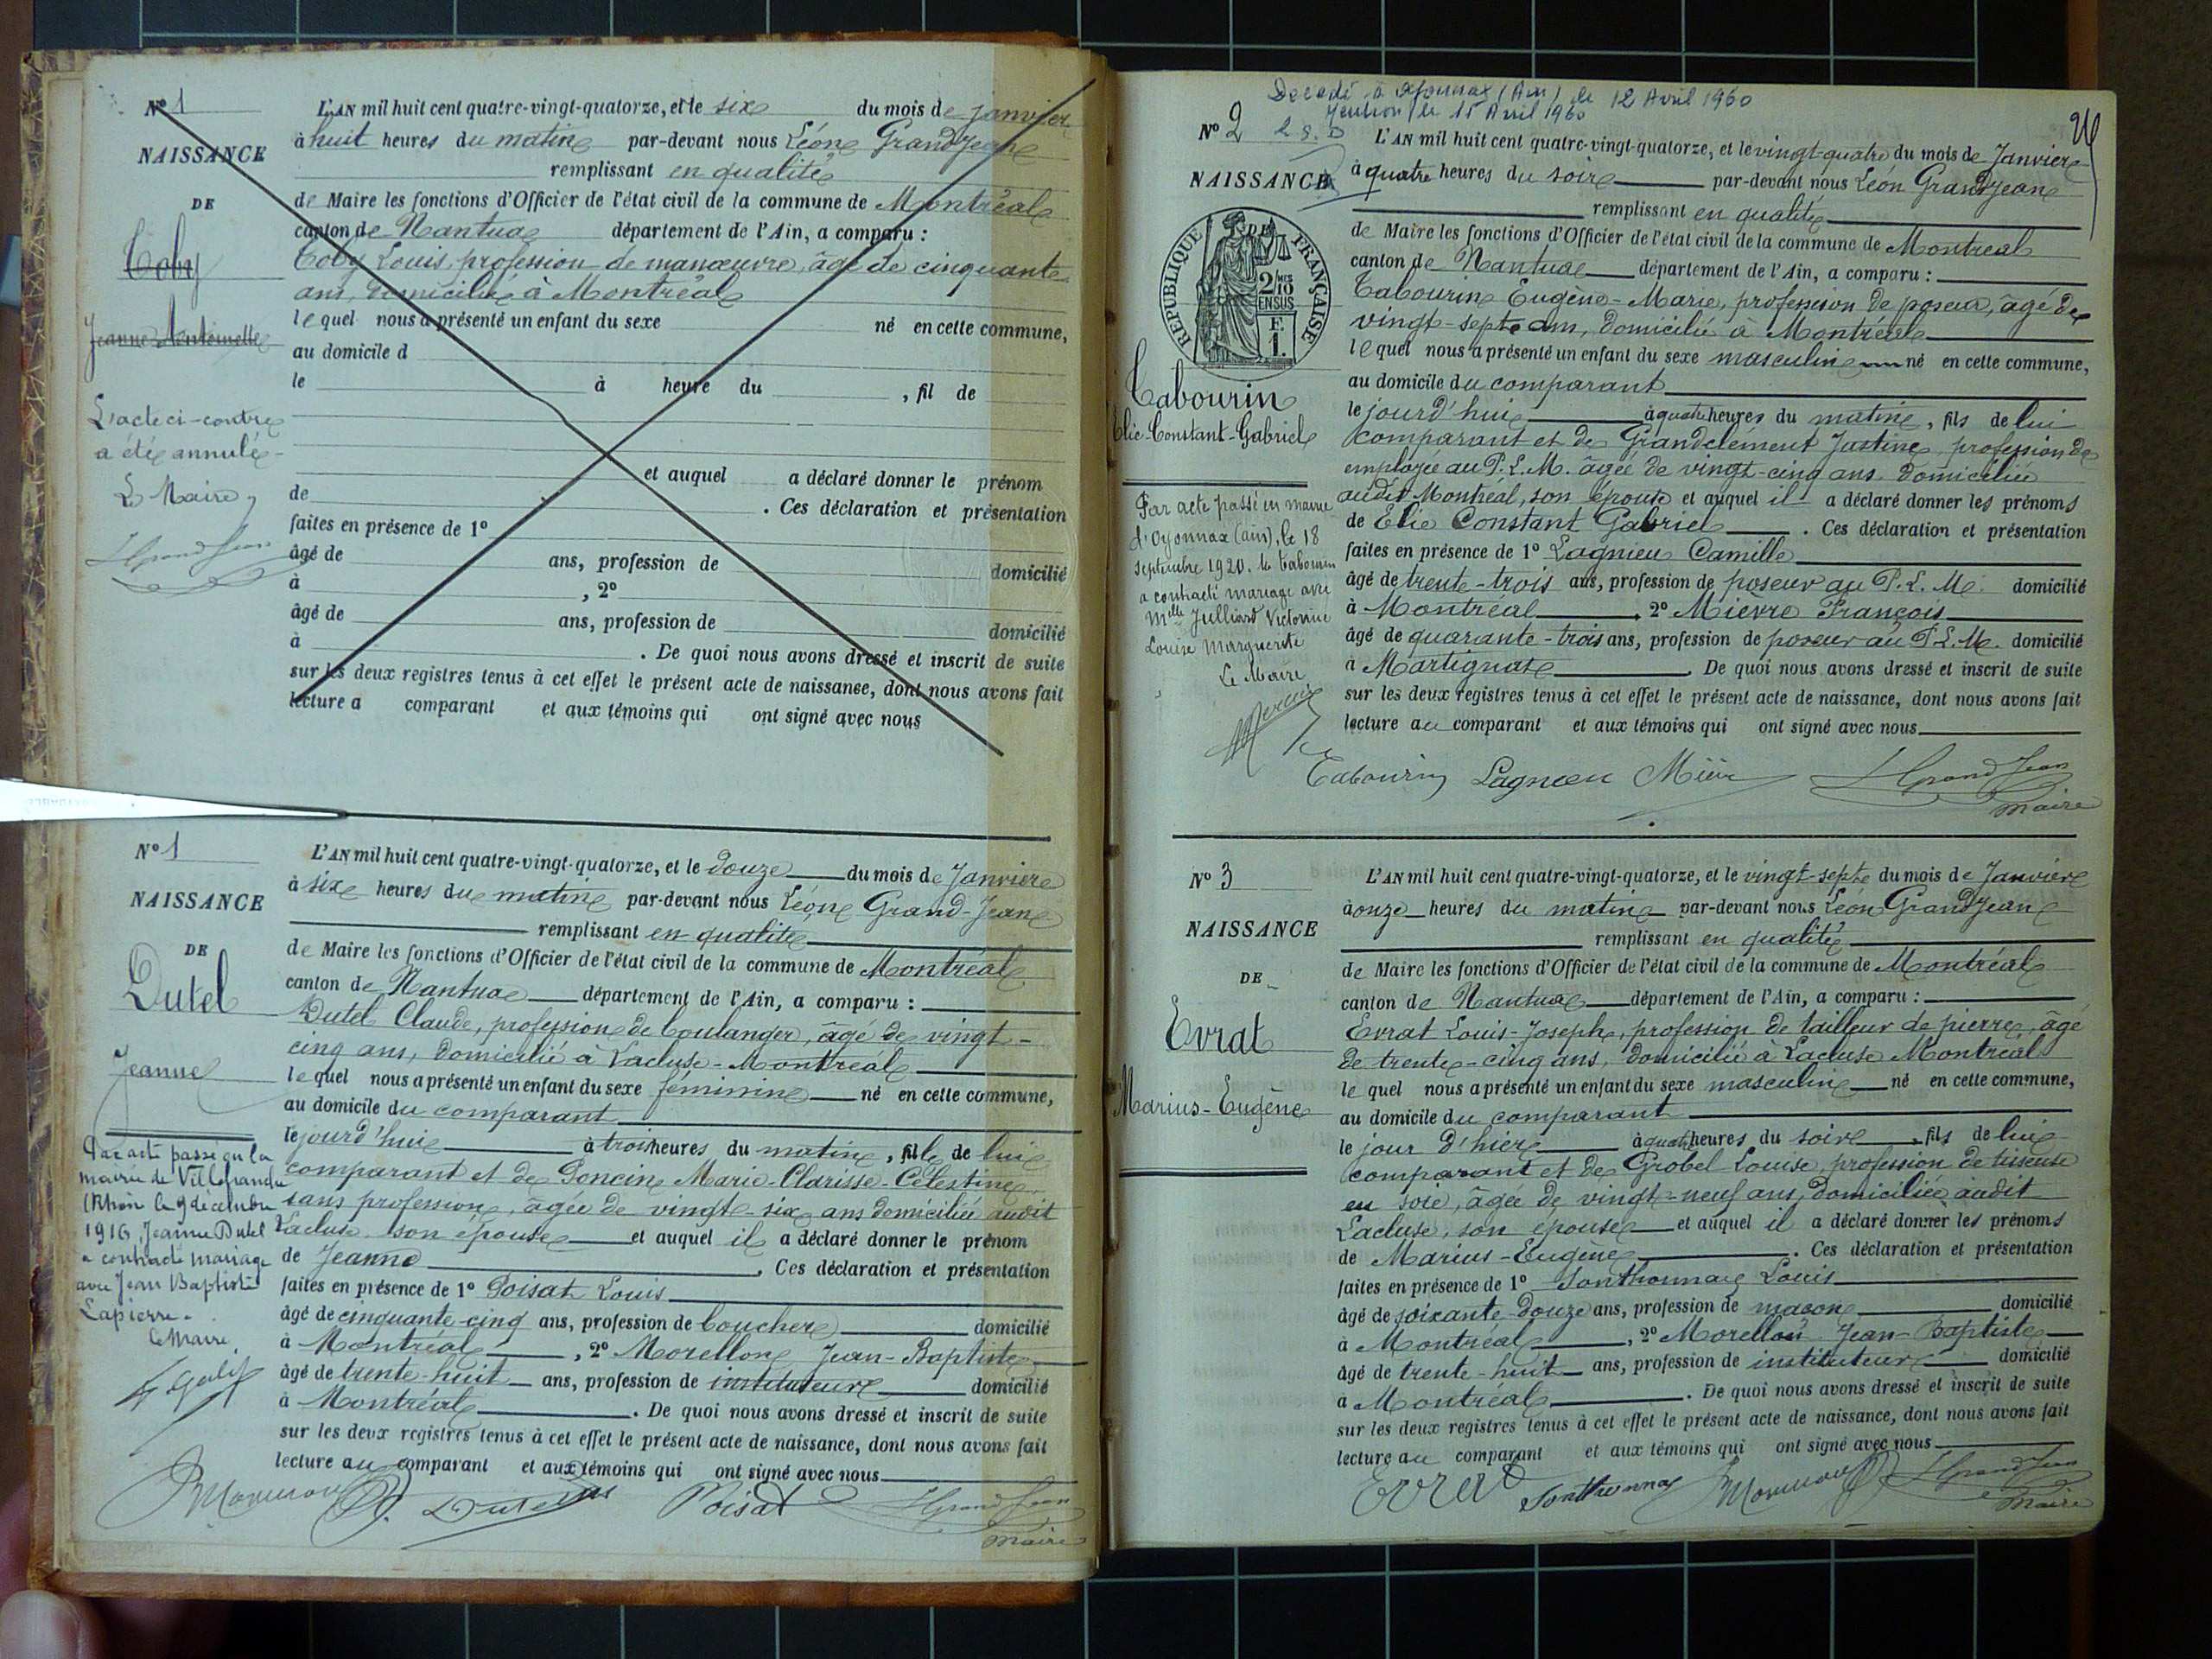 Nº 1
NAISSANCE
DE
Coby
Jeanne Antoinette
L'acte ci-contre
a été annulé
Le Maire,
LGrandJean
L'AN mil huit cent quatre-vingt-quatorze, et le six du mois de janvier
à huit heures du matin par-devant nous Léon Grandjean
remplissant en qualité
de Maire les fonctions d'Officier de l'état civil de la commune de Montréal
canton de Nantua département de l'Ain, a comparu :
Coby Louis, profession de manœuvre, âgé de cinquante
ans, domicilié à Montréal
lequel nous a présenté un enfant du sexe né en cette commune,
au domicile d
le à heure du , fil de
et auquel a déclaré donner le prénom
de . Ces déclaration et présentation
faites en présence de 1º
âgé de ans, profession de domicilié
à , 2º
âgé de ans, profession de domicilié
à . De quoi nous avons dressé et inscrit de suite
sur les deux registres tenus à cet effet le présent acte de naissance, dont nous avons fait
lecture a comparant et aux témoins qui ont signé avec nous
Nº 1
NAISSANCE
DE
Dutel
Jeanne
Par acte passé en la
mairie de Villefranche
(Rhône le 9 décembre
1916, Jeanne Dutel
a contracté mariage
avec Jean Baptiste
Lapierre.
Le Maire,
L'AN mil huit cent quatre-vingt-quatorze, et le douze du mois de Janvier
à six heures du matin par-devant nous Léon Grand-Jean
remplissant en qualité
de Maire les fonctions d'Officier de l'état civil de la commune de Montréal
canton de Nantua département de l'Ain, a comparu :
Dutel Claude, profession de boulanger, âgé de vingt-
cinq ans, domicilié à Lacluse-Montréal
lequel nous a présenté un enfant du sexe féminin né en cette commune,
au domicile du comparant
le jourd'hui à trois heures du matin, fille de lui
comparant et de Poncin Marie-Clarisse-Célestine
sans profession, âgée de vingt-six ans domiciliée audit
Lacluse son épouse et auquel il a déclaré donner le prénom
de Jeanne . Ces déclaration et présentation
faites en présence de 1º Poisat Louis
âgé de cinquante cinq ans, profession de boucher domicilié
à Montréal , 2º Morellon Jean-Baptiste
âgé de trente-huit ans, profession de instituteur domicilié
à Montréal . De quoi nous avons dressé et inscrit de suite
sur les deux registres tenus à cet effet le présent acte de naissance, dont nous avons fait
lecture au comparant et aux témoins qui ont signé avec nous
Dutel Poisat LGrandJean
maire
Décédé à Oyonnax (Ain) le 12 Avril 1960
Mention le 15 Avril 1960
Nº 2
NAISSANCE
DE
RÉPUBLIQUE FRANÇAISE
2/10 EN SUS
F. 1.
Tabourin
Elie-Constant-Gabriel
Par acte passé en mairie
d'Oyonnax (ain), le 18
septembre 1920. le Tabourin
a contracté mariage avec
Mlle Julliard Victorine
Louise Marguerite
Le Maire
L'AN mil huit cent quatre-vingt-quatorze, et le vingt-quatre du mois de Janvier
à quatre heures du soir par-devant nous Léon Grandjean
remplissant en qualité
de Maire les fonctions d'Officier de l'état civil de la commune de Montréal
canton de Nantua département de l'Ain, a comparu :
Tabourin Eugène-Marie, profession de poseur, âgé de
vingt-sept ans, domicilié à Montréal
lequel nous a présenté un enfant du sexe masculin né en cette commune,
au domicile du comparant
le jourd'hui à quatre heures du matin, fils de lui
comparant et de Grandclément Justine, profession de
employée au P.L.M. âgée de vingt-cinq ans domiciliée
audit Montréal, son épouse et auquel il a déclaré donner les prénoms
de Elie Constant Gabriel . Ces déclaration et présentation
faites en présence de 1º Lagnieu Camille
âgé de trente-trois ans, profession de poseur au P.L.M. domicilié
à Montréal , 2º Mièvre François
âgé de quarante-trois ans, profession de poseur au P.L.M. domicilié
à Martignat . De quoi nous avons dressé et inscrit de suite
sur les deux registres tenus à cet effet le présent acte de naissance, dont nous avons fait
lecture au comparant et aux témoins qui ont signé avec nous
Tabourin Lagnieu LGrandJean
maire
Nº 3
NAISSANCE
DE
Evrat
Marius-Eugène
L'AN mil huit cent quatre-vingt-quatorze, et le vingt-sept du mois de Janvier
à onze heures du matin par-devant nous Léon Grandjean
remplissant en qualité
de Maire les fonctions d'Officier de l'état civil de la commune de Montréal
canton de Nantua département de l'Ain, a comparu :
Evrat Louis-Joseph, profession de tailleur de pierre, âgé
de trente-cinq ans, domicilié à Lacluse Montréal
lequel nous a présenté un enfant du sexe masculin né en cette commune,
au domicile du comparant
le jour d'hier à quatre heures du soir, fils de lui
comparant et de Grobel Louise, profession de tisseuse
en soie, âgée de vingt-neuf ans, domiciliée audit
Lacluse, son épouse et auquel il a déclaré donner les prénoms
de Marius-Eugène . Ces déclaration et présentation
faites en présence de 1º Sonthonnax Louis
âgé de soixante-douze ans, profession de maçon domicilié
à Montréal , 2º Morellon Jean-Baptiste
âgé de trente-huit ans, profession de instituteur domicilié
à Montréal . De quoi nous avons dressé et inscrit de suite
sur les deux registres tenus à cet effet le présent acte de naissance, dont nous avons fait
lecture au comparant et aux témoins qui ont signé avec nous
Evrat Sonthonnax LGrandJean
maire